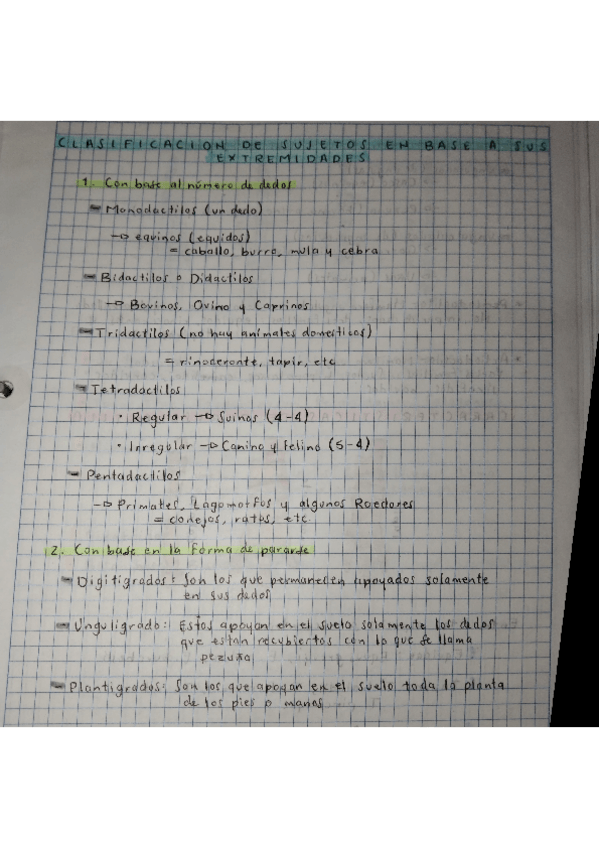 CLASIFICACION DE SUJETOS EN BASE A SUS
EXTREMIDADES
1. Con base al número de dedos
- Monodactilos (un dedo)
→ equinos (equidos)
= caballo, burro, mula y cebra
- Bidactilos o Didactilos
→ Bovinos, Ovino y Caprinos
- Tridactilos (no hay animales domesticos)
= rinoceronte, tapir, etc
- Tetradactilos
• Regular → Suinos (4-4)
• Irregular → Canino y Felino (5-4)
- Pentadactilos
→ Primates, Lagomorfos y algunos Roedores
= conejos, ratas, etc.
2. Con base en la forma de pararse
- Digitigrados: Son los que permanecen apoyados solamente
en sus dedos
- Unguligrado: Estos apoyan en el suelo solamente los dedos
que estan recubiertos con lo que se llama
pezuña
- Plantigrados: Son los que apoyan en el suelo toda la planta
de los pies o manos